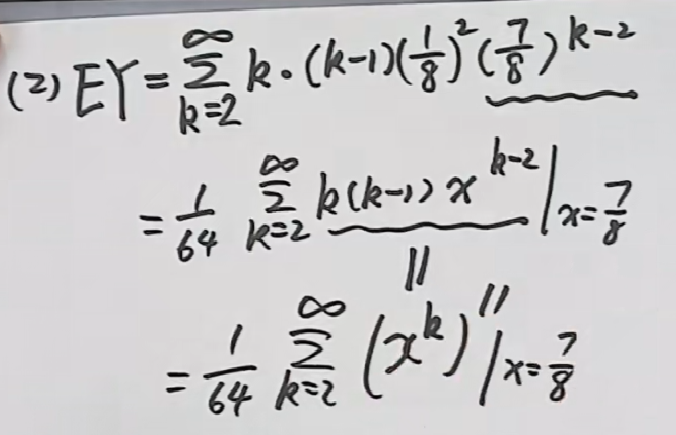 (2) EY = ∑_{k=2}^{∞} k·(k-1)(1/8)^2(7/8)^{k-2}
= 1/64 ∑_{k=2}^{∞} k(k-1) x^{k-2} |_{x=7/8}
||
= 1/64 ∑_{k=2}^{∞} (x^k)'' |_{x=7/8}